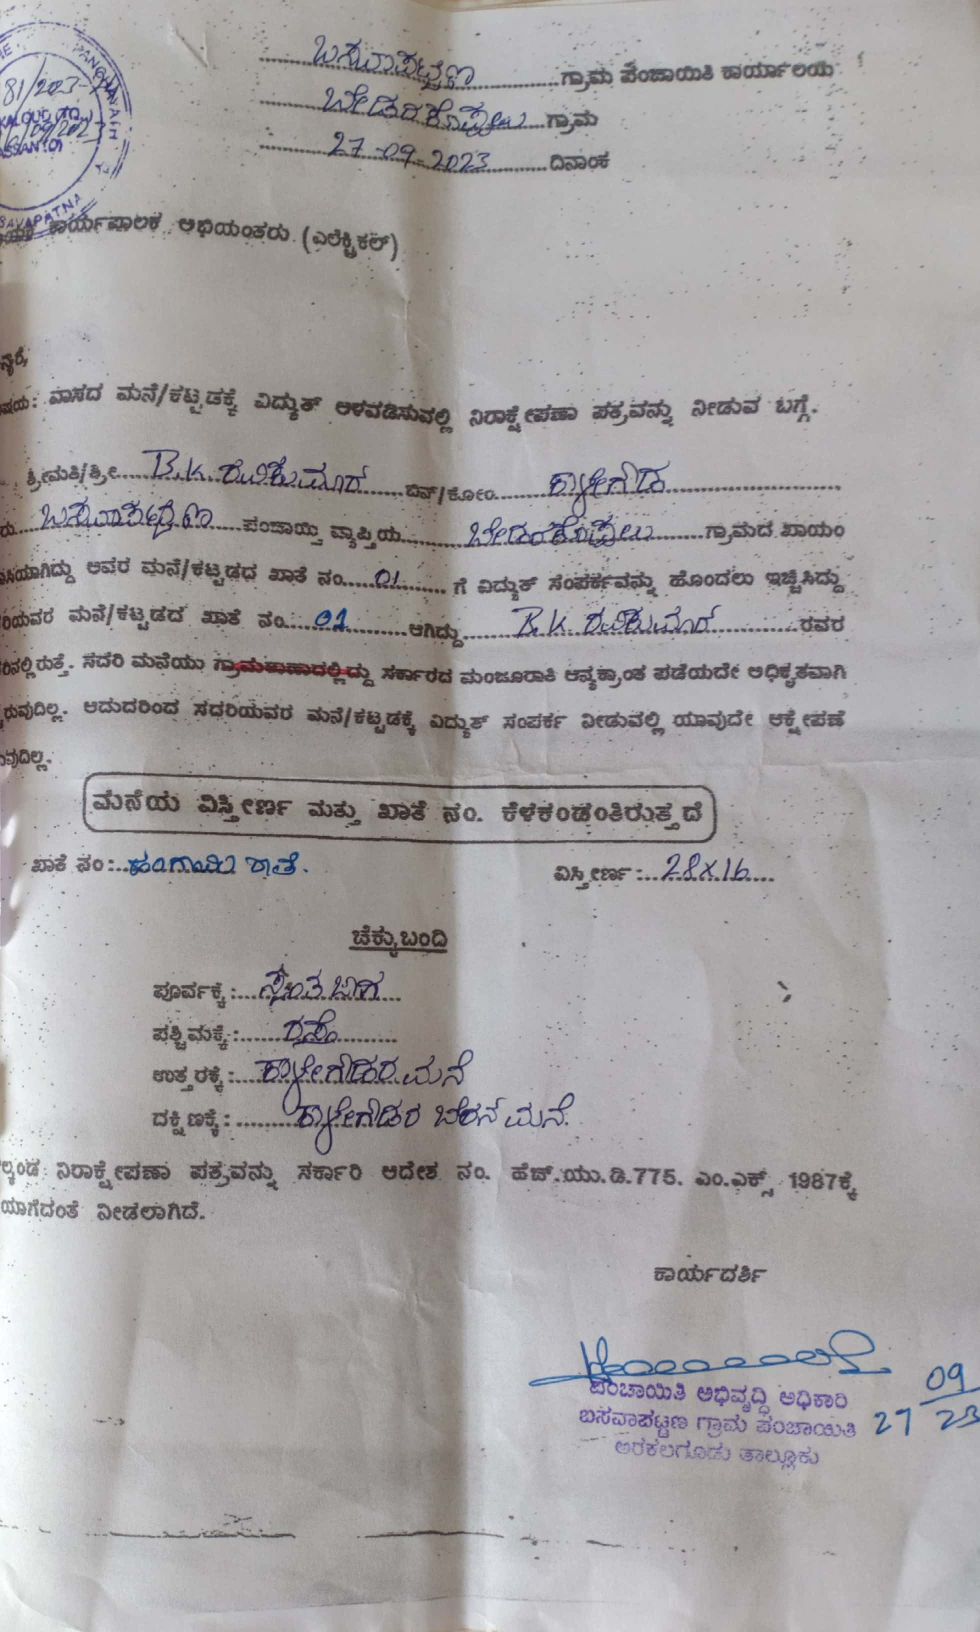 ಬಸವಾಪಟ್ಟಣ ಗ್ರಾಮ ಪಂಚಾಯಿತಿ ಕಾರ್ಯಾಲಯ
ಬೇಡರಕೊಪ್ಪಲು ಗ್ರಾಮ
27-09-2023 ದಿನಾಂಕ
81/2023-
ಕಾರ್ಯಪಾಲಕ ಅಭಿಯಂತರು (ಎಲೆಕ್ಟ್ರಿಕಲ್)
ವಾಸದ ಮನೆ/ಕಟ್ಟಡಕ್ಕೆ ವಿದ್ಯುತ್ ಅಳವಡಿಸುವಲ್ಲಿ ನಿರಾಕ್ಷೇಪಣಾ ಪತ್ರವನ್ನು ನೀಡುವ ಬಗ್ಗೆ.
ಶ್ರೀಮತಿ/ಶ್ರೀ B.K. ರವಿಕುಮಾರ್ ಬಿನ್/ಕೋಂ ಕಾಳೇಗೌಡ
ರು ಬಸವಾಪಟ್ಟಣ ಪಂಚಾಯ್ತಿ ವ್ಯಾಪ್ತಿಯ ಬೇಡರಕೊಪ್ಪಲು ಗ್ರಾಮದ ಖಾಯಂ
ಸಿಯಾಗಿದ್ದು ಅವರ ಮನೆ/ಕಟ್ಟಡದ ಖಾತೆ ನಂ. 01 ಗೆ ವಿದ್ಯುತ್ ಸಂಪರ್ಕವನ್ನು ಹೊಂದಲು ಇಚ್ಛಿಸಿದ್ದು
ರಿಯವರ ಮನೆ/ಕಟ್ಟಡದ ಖಾತೆ ನಂ. 01 ಆಗಿದ್ದು B.K. ರವಿಕುಮಾರ್ ರವರ
ರಿನಲ್ಲಿರುತ್ತೆ. ಸದರಿ ಮನೆಯು ಗ್ರಾಮಠಾಣಾದಲ್ಲಿದ್ದು ಸರ್ಕಾರದ ಮಂಜೂರಾತಿ ಅನ್ಯಕ್ರಾಂತ ಪಡೆಯದೇ ಅಧಿಕೃತವಾಗಿ
ರುವುದಿಲ್ಲ. ಆದುದರಿಂದ ಸದರಿಯವರ ಮನೆ/ಕಟ್ಟಡಕ್ಕೆ ವಿದ್ಯುತ್ ಸಂಪರ್ಕ ನೀಡುವಲ್ಲಿ ಯಾವುದೇ ಆಕ್ಷೇಪಣೆ
ವುದಿಲ್ಲ.
ಮನೆಯ ವಿಸ್ತೀರ್ಣ ಮತ್ತು ಖಾತೆ ನಂ. ಕೆಳಕಂಡಂತಿರುತ್ತದೆ
ಖಾತೆ ನಂ: ಹಂಗಾಮಿ ಖಾತೆ. ವಿಸ್ತೀರ್ಣ: 28X16
ಚೆಕ್ಕುಬಂದಿ
ಪೂರ್ವಕ್ಕೆ: ಸ್ವಂತ ಜಾಗ
ಪಶ್ಚಿಮಕ್ಕೆ: ರಸ್ತೆ
ಉತ್ತರಕ್ಕೆ: ಕಾಳೇಗೌಡರ ಮನೆ
ದಕ್ಷಿಣಕ್ಕೆ: ಕಾಳೇಗೌಡರ ಮನೆ.
ಲ್ಕಂಡ ನಿರಾಕ್ಷೇಪಣಾ ಪತ್ರವನ್ನು ಸರ್ಕಾರಿ ಆದೇಶ ನಂ. ಹೆಚ್.ಯು.ಡಿ.775. ಎಂ.ಎಕ್ಸ್ 1987ಕ್ಕೆ
ಯಾಗದಂತೆ ನೀಡಲಾಗಿದೆ.
ಕಾರ್ಯದರ್ಶಿ
ಪಂಚಾಯಿತಿ ಅಭಿವೃದ್ಧಿ ಅಧಿಕಾರಿ
ಬಸವಾಪಟ್ಟಣ ಗ್ರಾಮ ಪಂಚಾಯಿತಿ
ಅರಕಲಗೂಡು ತಾಲ್ಲೂಕು
27 09 23